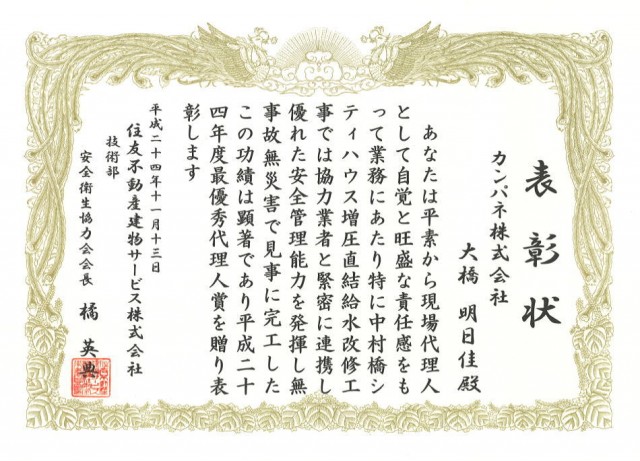 表彰状
カンパネ株式会社
大橋 明日佳殿
あなたは平素から現場代理人
として自覚と旺盛な責任感をも
って業務にあたり特に中村橋シ
ティハウス増圧直結給水改修工
事では協力業者と緊密に連携し
優れた安全管理能力を発揮し無
事故無災害で見事に完工した
この功績は顕著であり平成二十
四年度最優秀代理人賞を贈り表
彰します
平成二十四年十一月十三日
住友不動産建物サービス株式会社
技術部
安全衛生協力会会長 橘 英典